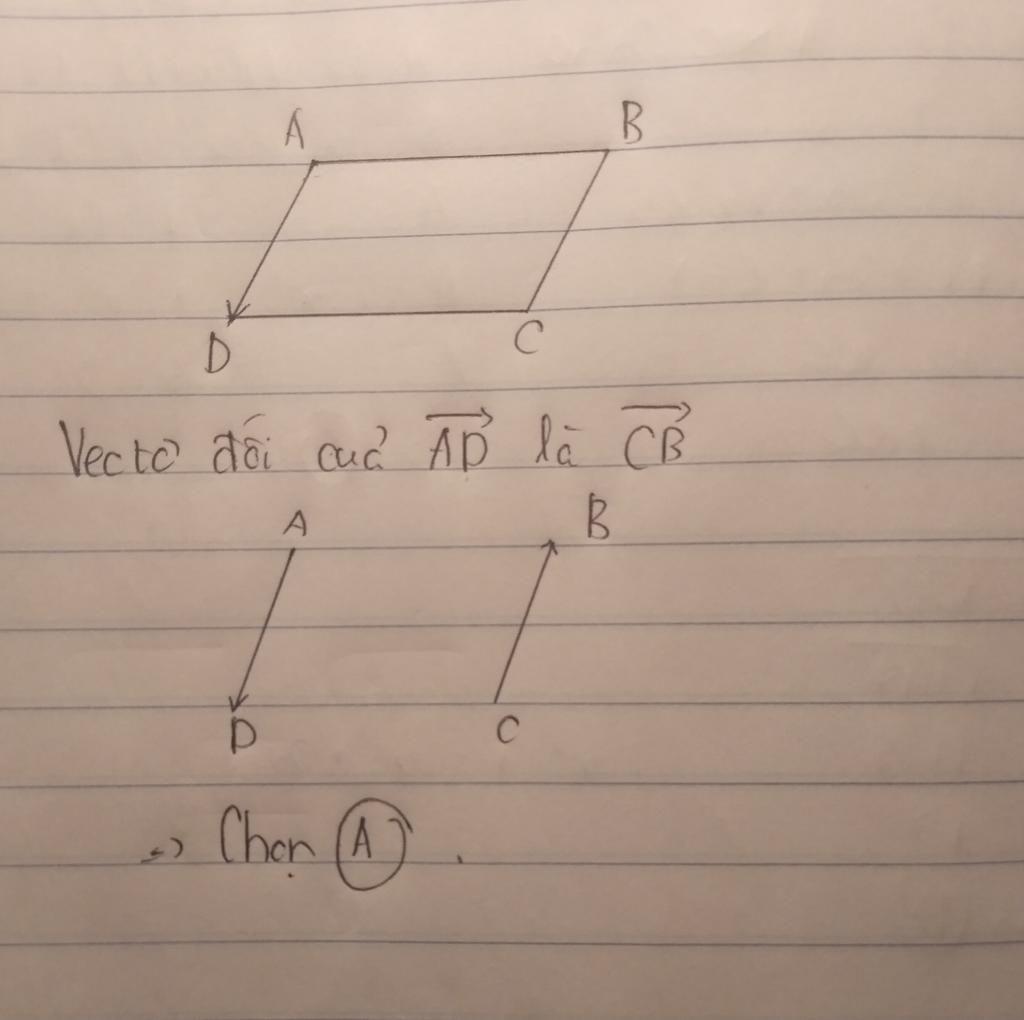 A B
D C
Vectơ đối cuả AD là CB
A B
D C
=> Chọn A .